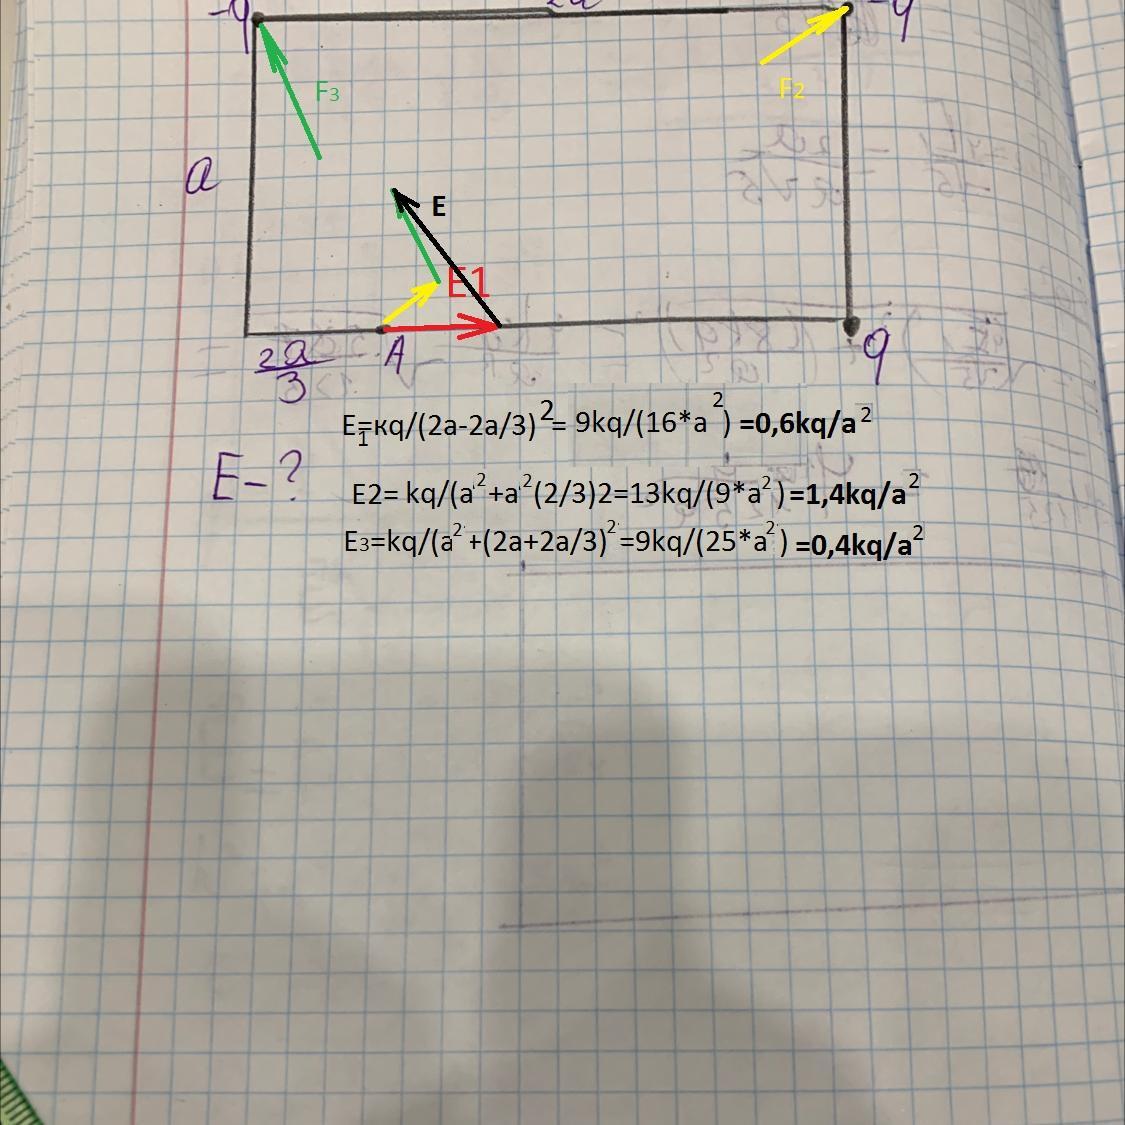 -q 2a -q
F3
F2
a
E
E1
2a/3 A q
E1=кq/(2a-2a/3)²= 9kq/(16*a²) =0,6kq/a²
E-?
E2= kq/(a²+a²(2/3)2=13kq/(9*a²)=1,4kq/a²
E3=kq/(a²+(2a+2a/3)²=9kq/(25*a²) =0,4kq/a²